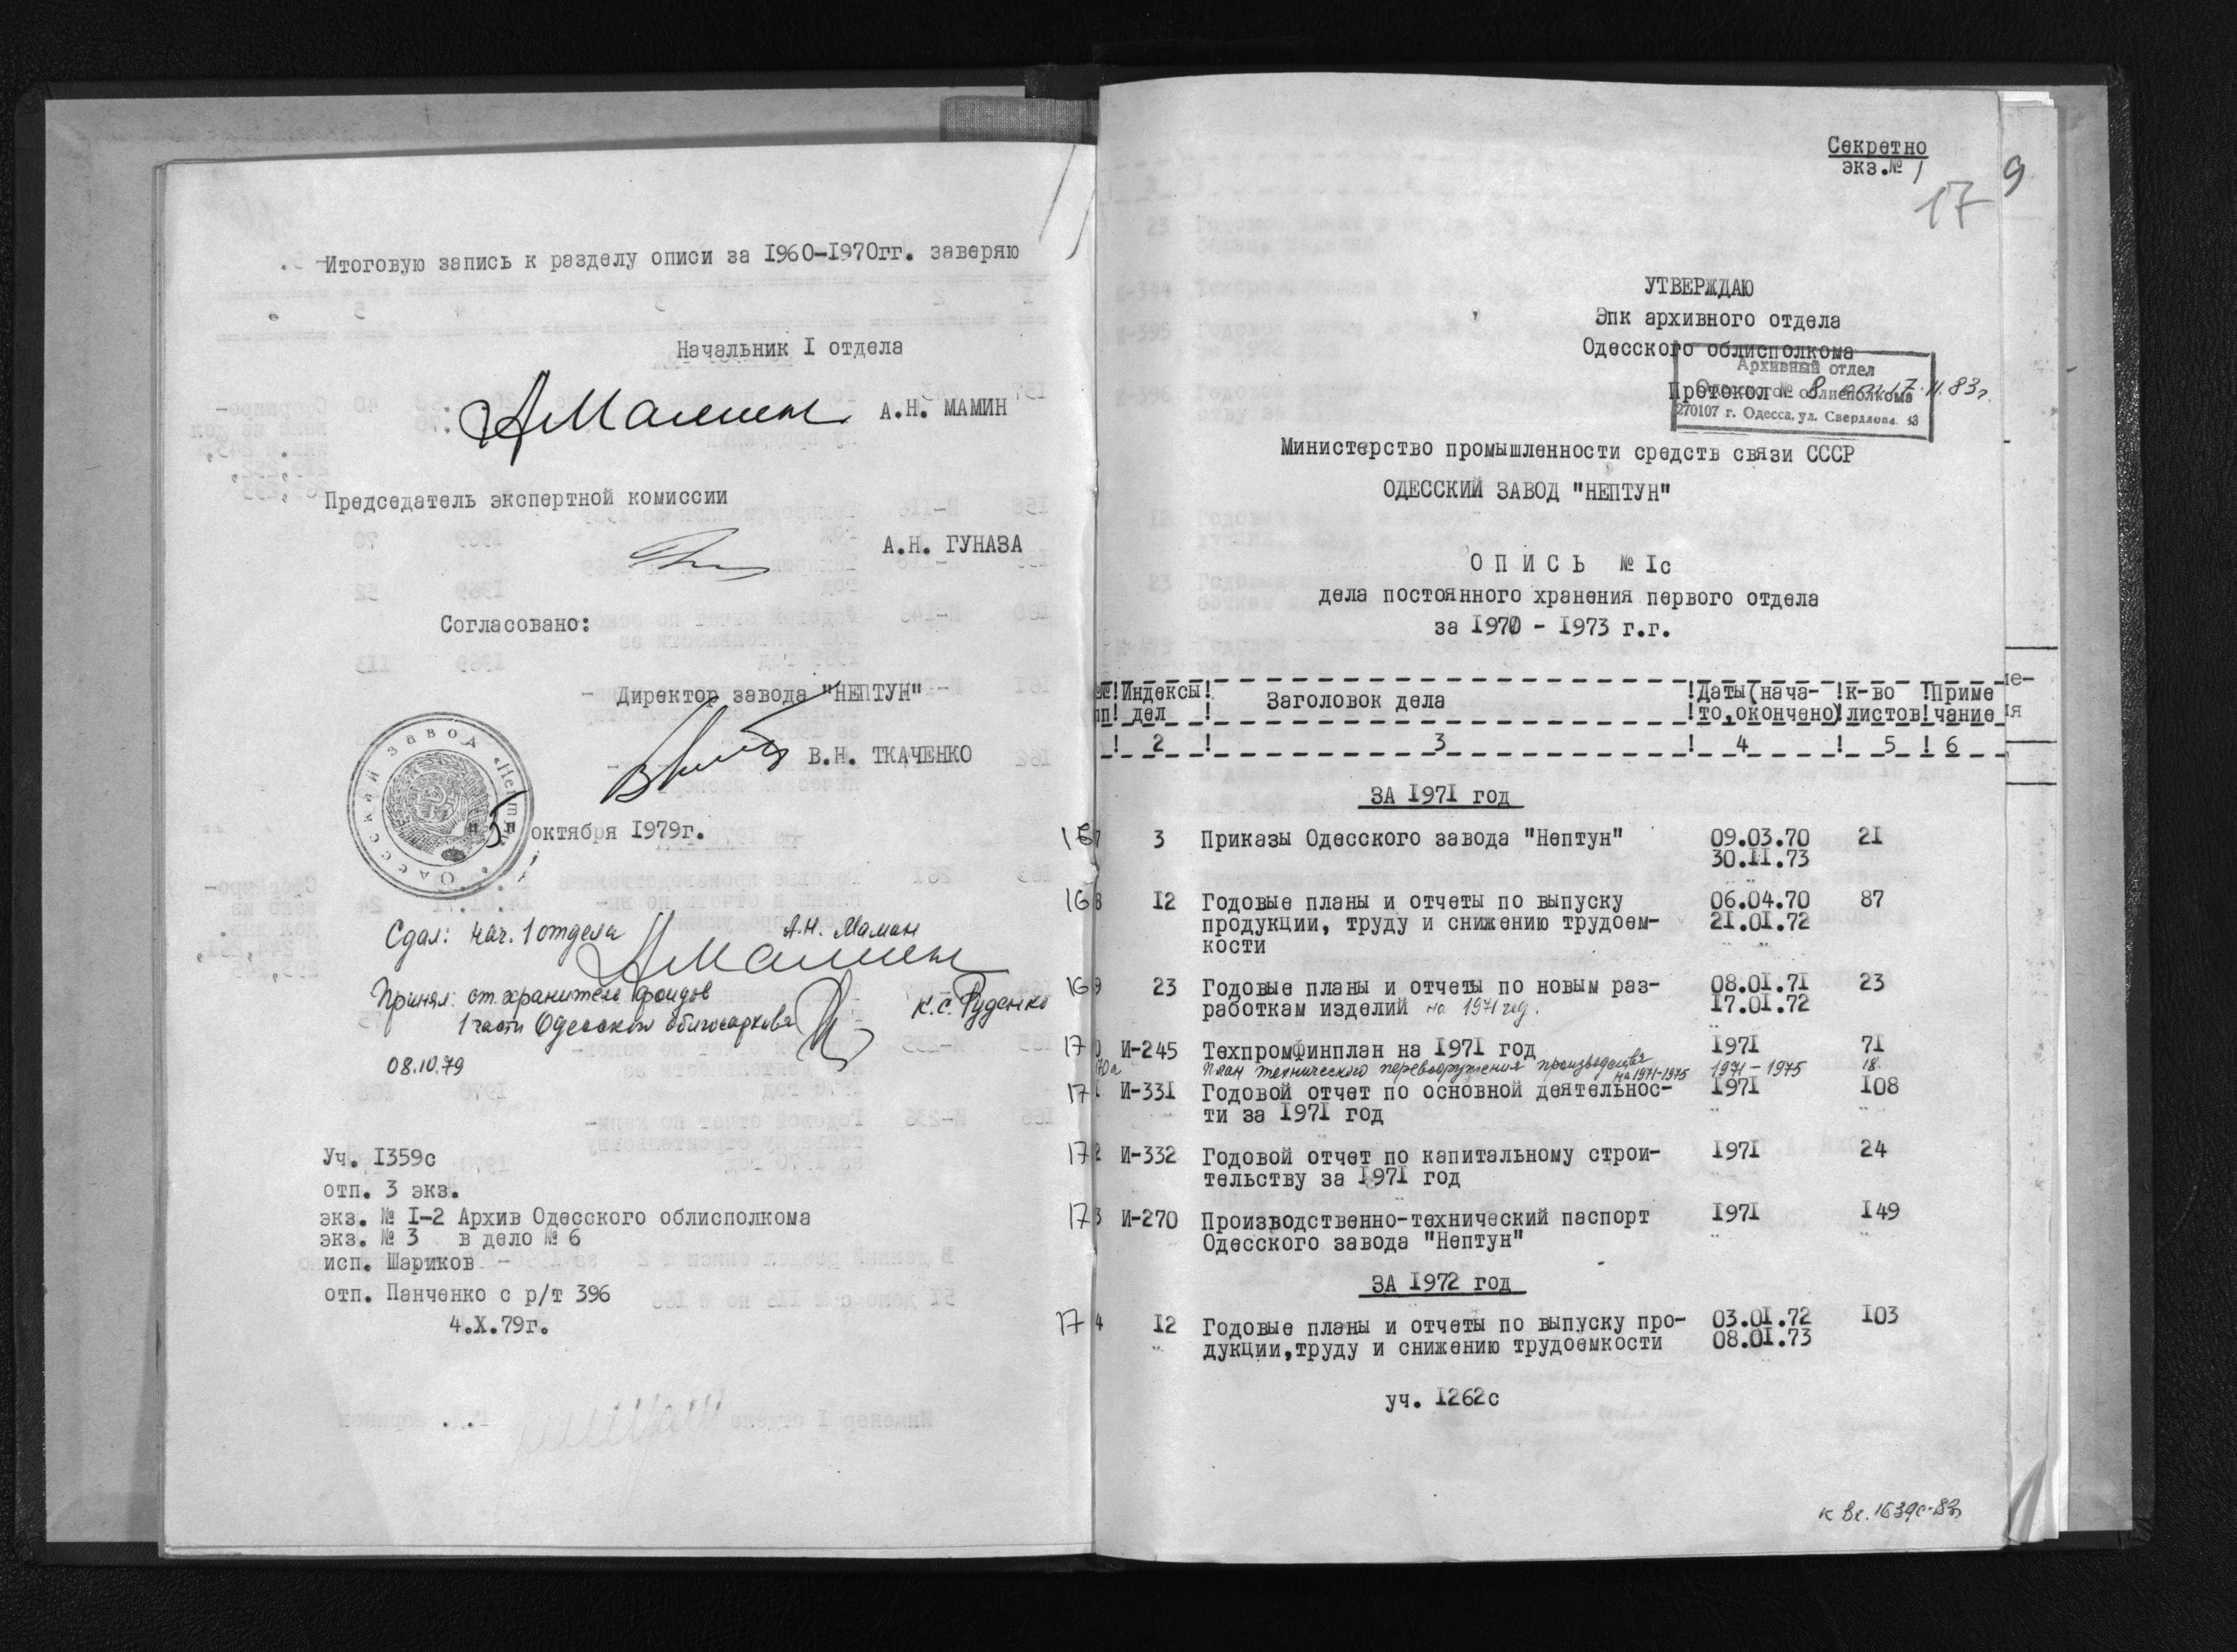 Итоговую запись к разделу описи за I960-I970гг. заверяю
Начальник I отдела
А.Н. МАМИН
Председатель экспертной комиссии
А.Н. ГУНАЗА
Согласовано:
Директор завода "НЕПТУН"
В.Н. ТКАЧЕНКО
Одесский завод «Нептун»
"5" октября I979г.
Сдал: нач. 1 отдела А.Н. Мамин
Принял: ст. хранитель фондов
1 части Одесского облгосархива К.С. Руденко
08.10.79
Уч. I359с
отп. 3 экз.
экз. № I-2 Архив Одесского облисполкома
экз. № 3 в дело № 6
исп. Шариков -
отп. Панченко с р/т 396
4.X.79г.
Секретно
экз.№ 1
17
9
УТВЕРЖДАЮ
Эпк архивного отдела
Одесского облисполкома
Архивный отдел
Одесского облисполкома
Протокол № 8 от 17.11.83г.
270107 г. Одесса, ул. Свердлова
Министерство промышленности средств связи СССР
ОДЕССКИЙ ЗАВОД "НЕПТУН"
О П И С Ь № Iс
дела постоянного хранения первого отдела
за I970 - I973 г.г.
!Индексы! Заголовок дела !Даты(нача- !к-во !Приме
пп! дел ! !то,окончено)!листов!чание
! 2 ! 3 ! 4 ! 5 ! 6
ЗА I97I год
167 3 Приказы Одесского завода "Нептун" 09.03.70 2I
30.II.73
168 I2 Годовые планы и отчеты по выпуску 06.04.70 87
продукции, труду и снижению трудоем- 2I.0I.72
кости
169 23 Годовые планы и отчеты по новым раз- 08.0I.7I 23
работкам изделий на 1971 год. I7.0I.72
170 И-245 Техпромфинплан на I97I год I97I 7I
70а План технического перевооружения производства на 1971-1975 1971-1975 18
171 И-33I Годовой отчет по основной деятельнос- I97I I08
ти за I97I год
172 И-332 Годовой отчет по капитальному строи- I97I 24
тельству за I97I год
173 И-270 Производственно-технический паспорт I97I I49
Одесского завода "Нептун"
ЗА I972 год
174 I2 Годовые планы и отчеты по выпуску про- 03.0I.72 I03
дукции,труду и снижению трудоемкости 08.0I.73
уч. I262с
к вх. 1639с-83г